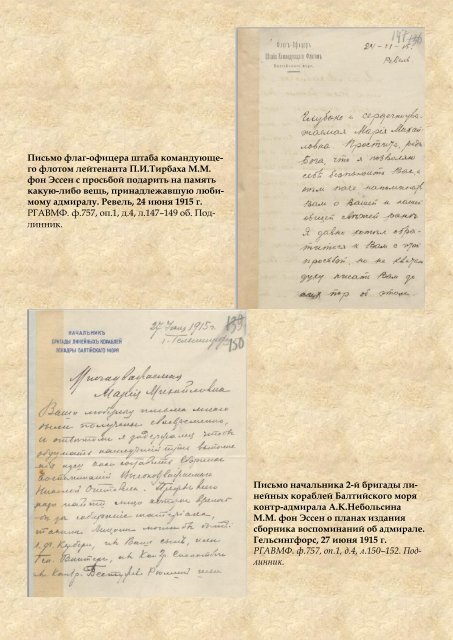 147 156
Флагъ-Офицеръ
Штаба Командующаго Флотомъ
Балтійскаго моря.
24-
Ревель
Глубоко и сердечноува-
жаемая Марія Михай-
ловна Простите, ради
Бога что я позволяю
себѣ безпокоить Вас, и
этим напоминать
Вам о Вашей и нашей
общей свѣжей ранѣ.
Я давно хотѣл обра-
титься к Вам с этой
просьбой, но не хватало
духу писать Вам до
сих пор об этом.
Письмо флаг-офицера штаба командующе-
го флотом лейтенанта П.И.Тирбаха М.М.
фон Эссен с просьбой подарить на память
какую-либо вещь, принадлежавшую люби-
мому адмиралу. Ревель, 24 июня 1915 г.
РГАВМФ. ф.757, оп.1, д.4, л.147–149 об. Под-
линник.
НАЧАЛЬНИКЪ
БРИГАДЫ ЛИНЕЙНЫХЪ КОРАБЛЕЙ
ЭСКАДРЫ БАЛТІЙСКАГО МОРЯ
27 1915 г.
г. Гельсингфорс
150
Многоуважаемая
Марія Михайловна
Ваше любезное письмо много
было получено своевременно,
и отвѣтом я задержал чтобы
обдумать
воспоминаний
Николай Оттовичѣ. Прежде всего
надо найти лицо которое
за собираніе матеріала,
таким лицом мог бы быть
или
Письмо начальника 2-й бригады ли-
нейных кораблей Балтийского моря
контр-адмирала А.К.Небольсина
М.М. фон Эссен о планах издания
сборника воспоминаний об адмирале.
Гельсингфорс, 27 июня 1915 г.
РГАВМФ. ф.757, оп.1, д.4, л.150–152. Под-
линник.